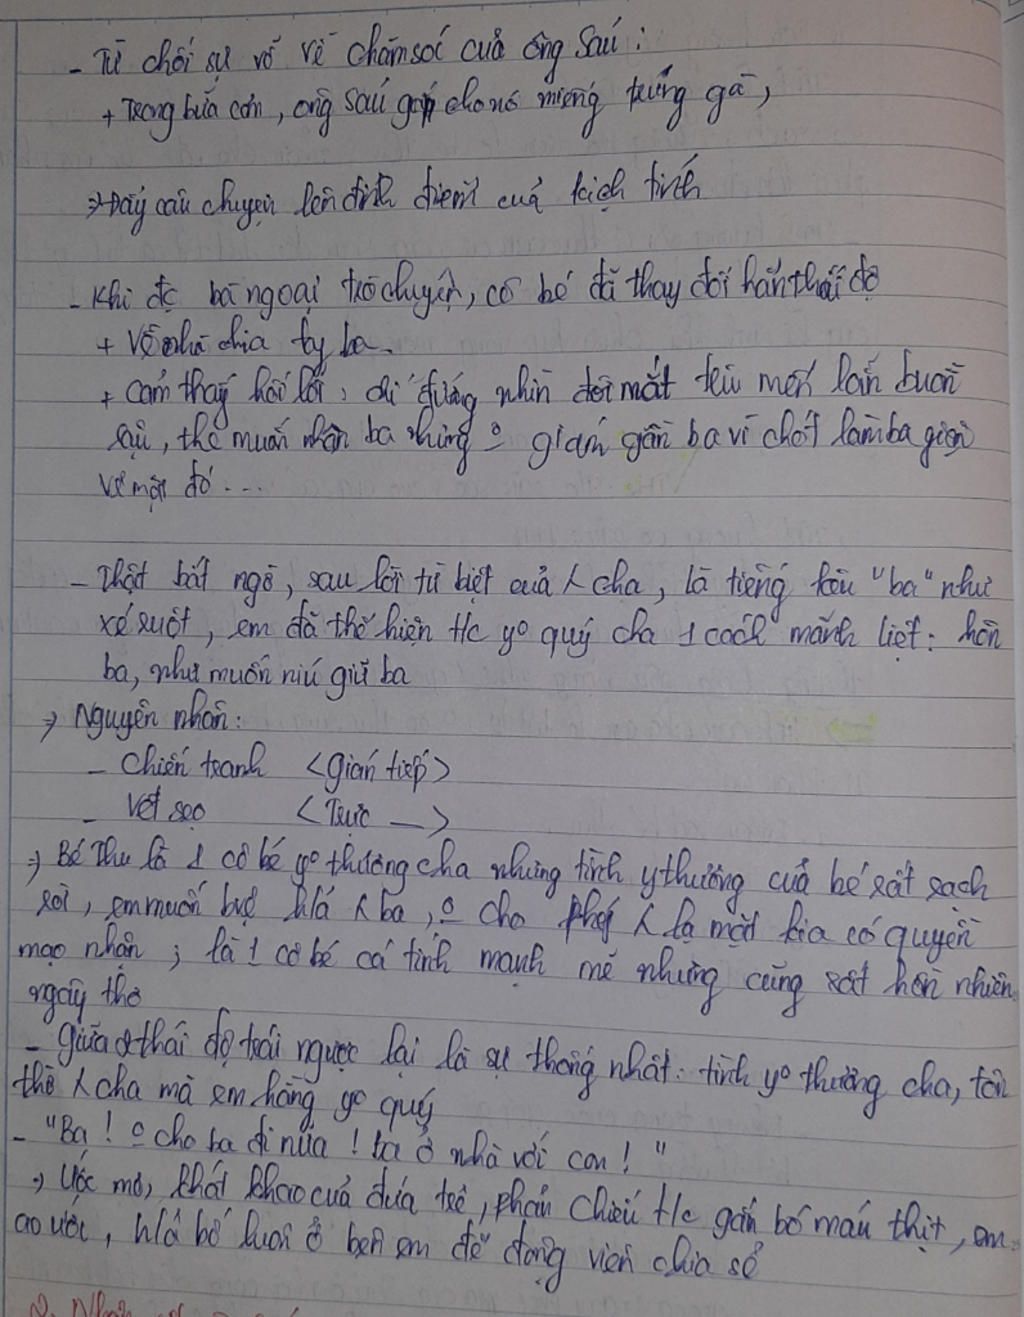 - Từ chối sự vỗ về chăm sóc của ông Sáu:
+ Trong bữa cơm, ông Sáu gắp cho nó miếng trứng gà,
=> Đẩy câu chuyện lên đỉnh điểm của kịch tính
- Khi đc bà ngoại trò chuyện, cô bé đã thay đổi hẳn thái độ
+ Về nhà chia tay ba.
+ cảm thấy hối lỗi, chỉ đứng nhìn đôi mắt trìu mến lẫn buồn
rầu, thể muốn nhận ba nhưng o gián gần ba vì chót làm ba giận
về mặt đó ...
- Thật bất ngờ, sau lời từ biệt của ʎ cha, là tiếng kêu "ba" như
xé ruột, em đã thể hiện t/c yo quý cha 1 cách mãnh liệt: hôn
ba, như muốn níu giữ ba
=> Nguyên nhân:
- Chiến tranh <gián tiếp>
- Vết sẹo <Trực —>
=> Bé Thu là 1 cô bé yo thương cha nhưng tình ythương của bé rất rạch
ròi, em muốn ʎ ba, o cho phép ʎ lạ mặt kia có quyền
mạo nhận; là 1 cô bé cá tính mạnh mẽ nhưng cũng rất hồn nhiên
ngây thơ
- giữa 2 thái độ trái ngược lại là sự thống nhất: tình yo thương cha, tôn
thờ ʎ cha mà em hằng yo quý
- "Ba! o cho ba đi nữa! ba ở nhà với con!"
=> Ước mơ, khát khao của đứa trẻ, phản chiếu t/c gắn bó máu thịt, em
ao ước, bố luôn ở bên em để động viên chia sẻ
2.